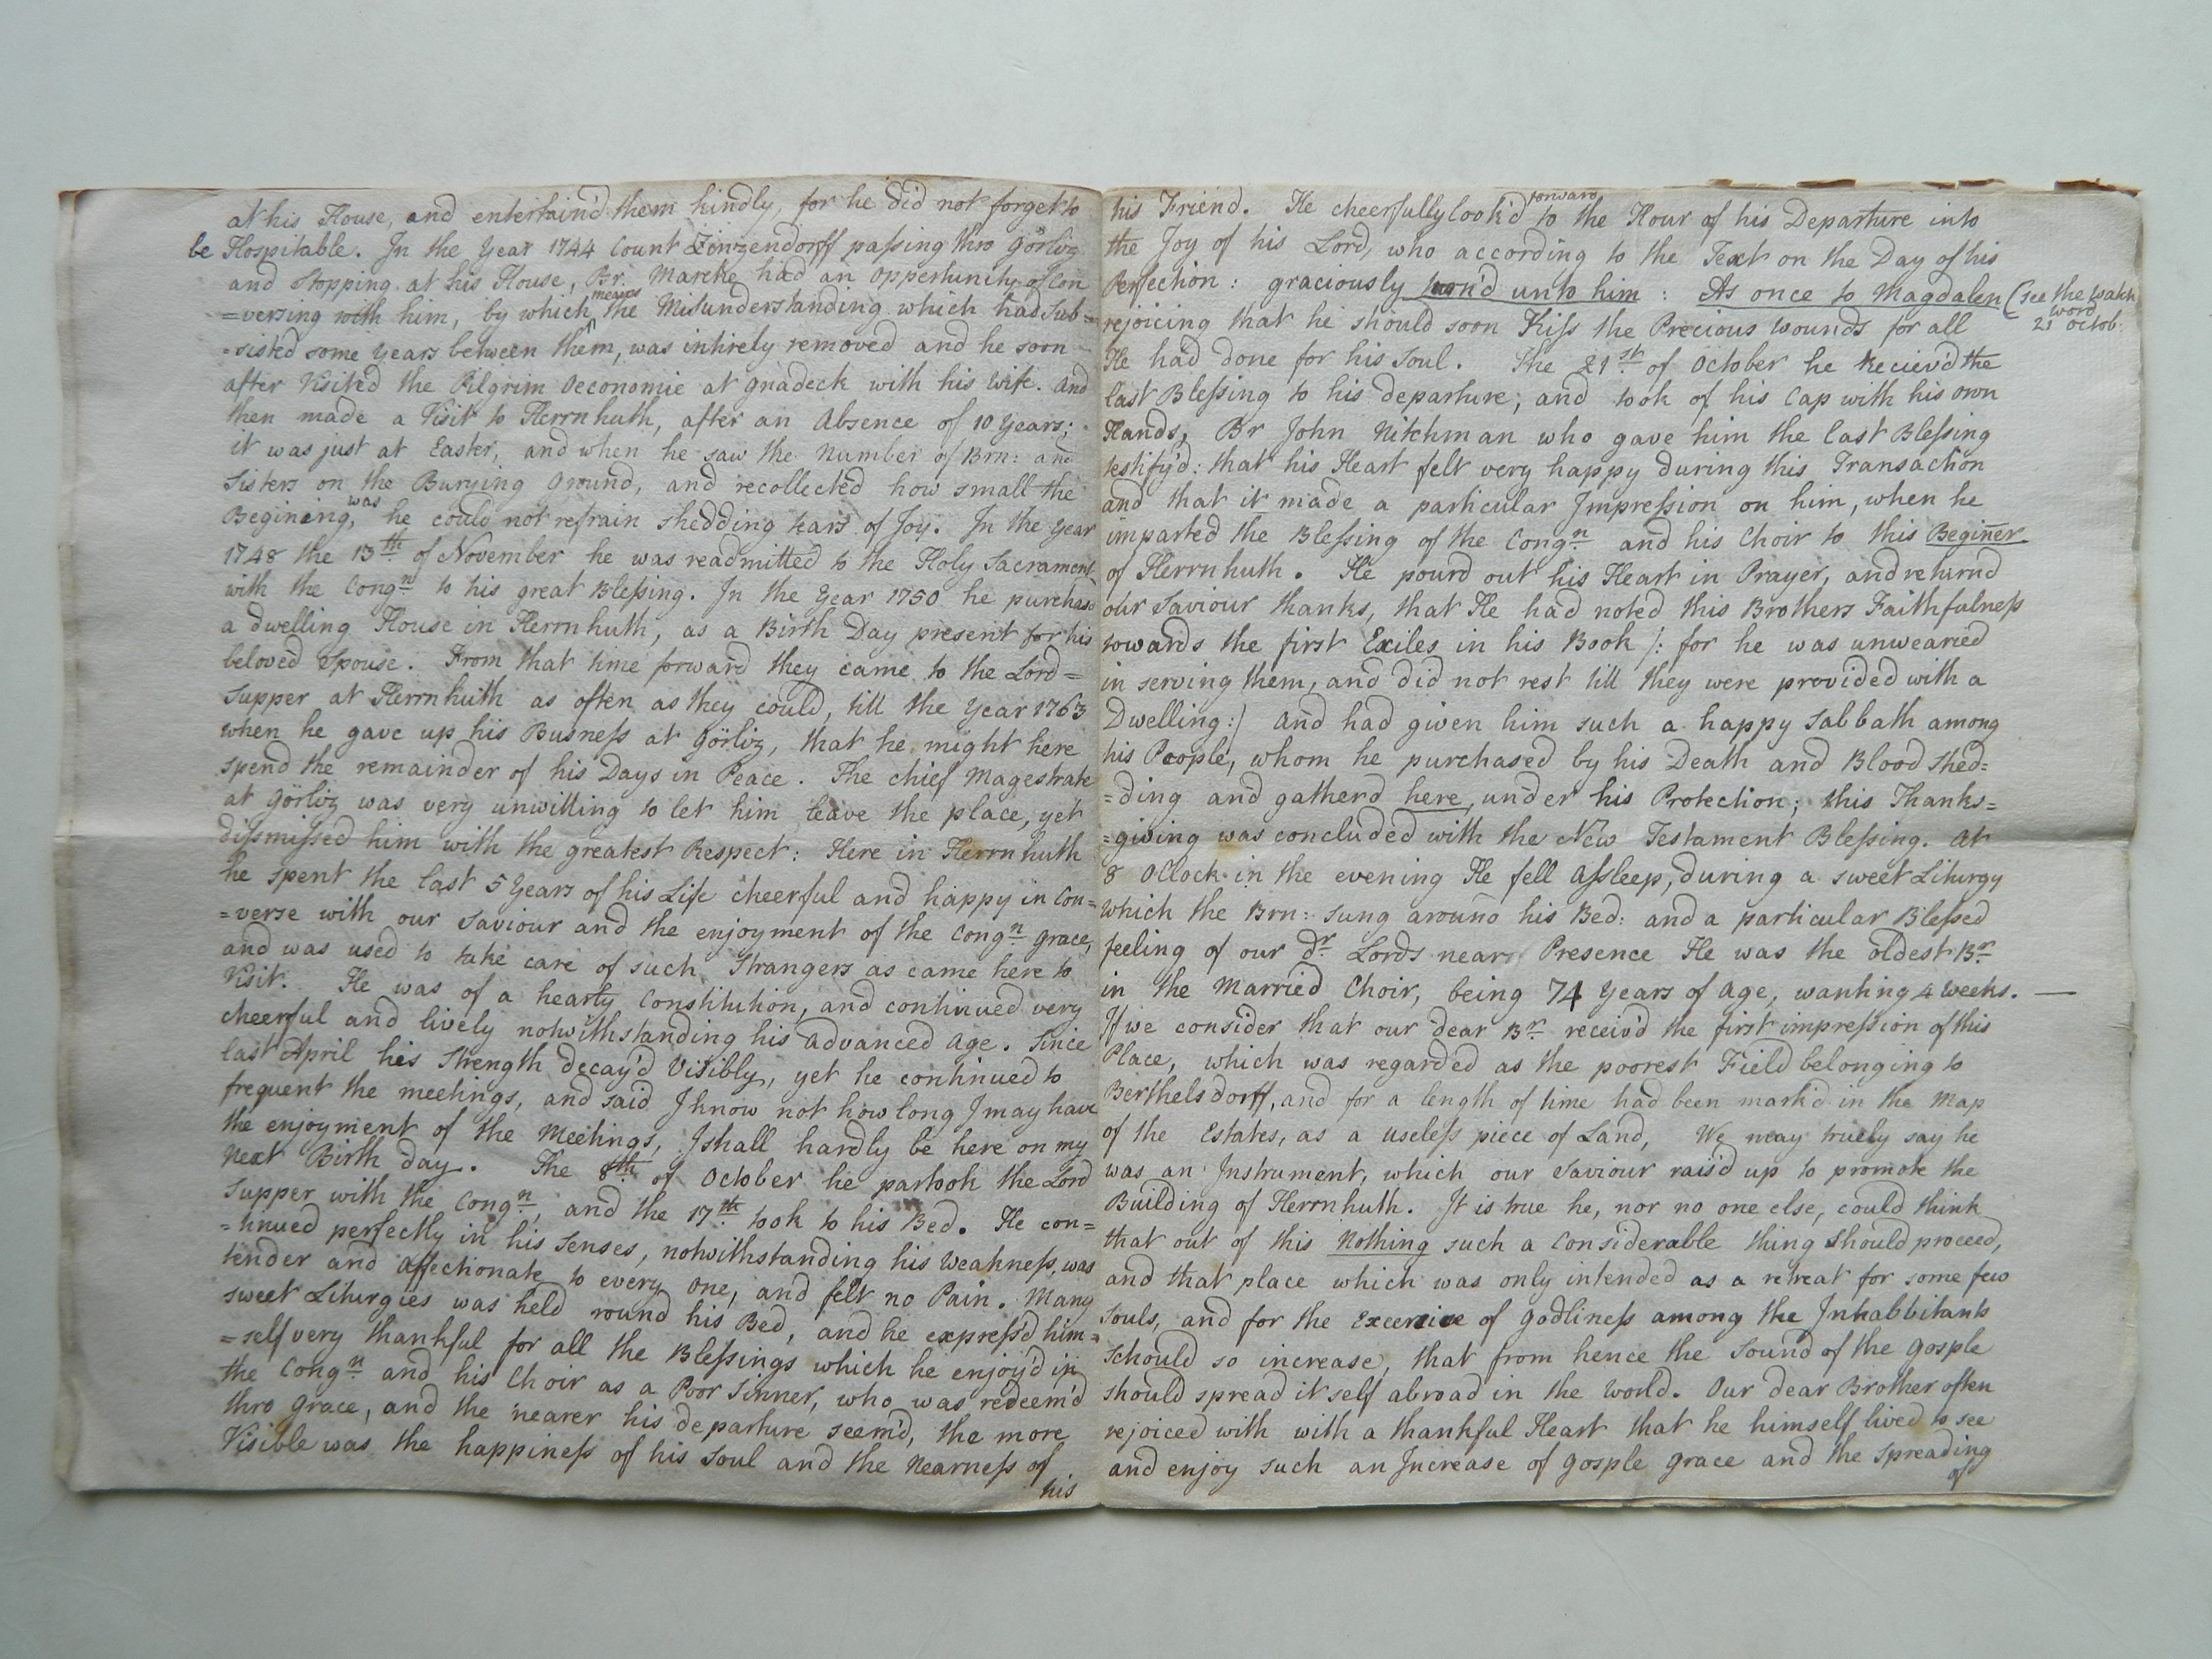 at his House, and entertain'd them kindly, for he did not forget to
be Hospitable. In the Year 1744 Count Zinzendorff paſsing thro Görliz
and stopping at his House, Br. Marche had an oppertunity of Con
=versing with him, by which means the Misunderstanding which had Sub=
=sisted some Years between them, was intirely removed and he soon
after Visited the Pilgrim Oeconomie at Gnadeck with his wife. and
then made a Visit to Herrnhuth, after an Absence of 10 Years;
it was just at Easter, and when he saw the Number of Brn: and
Sisters on the Burying Ground, and recollected how small the
Begining, was he could not refrain shedding tears of Joy. In the Year
1748 the 13th of November he was readmitted to the Holy Sacrament
with the Congn to his great Bleſsing. In the Year 1750 he purchasd
a dwelling House in Herrnhuth, as a Birth Day present for his
beloved Spouse. From that time forward they came to the Lord=
Supper at Herrnhuth as often as they could, till the Year 1763
when he gave up his Busneſs at Görliz, that he might here
spend the remainder of his Days in Peace. The chief Magestrate
at Görliz was very unwilling to let him leave the place, yet
diſsmiſsed him with the greatest Respect: Here in Herrnhuth
he spent the last 5 Years of his Life cheerful and happy in Con=
=verse with our Saviour and the enjoyment of the Congn grace,
and was used to take care of such Strangers as came here to
Visit. He was of a hearty Constitution, and continued very
cheerful and lively notwithstanding his advanced age. Since
last April his Strength decay'd Visibly, yet he continued to
frequent the meetings, and said I know not how long I may have
the enjoyment of the Meetings, I shall hardly be here on my
next Birth day. The 8th of October he partook the Lord
Supper with the Congn, and the 17th took to his Bed. He con=
=tinued perfectly in his Senses, notwithstanding his Weakneſs, was
tender and affectionate to every one, and felt no Pain. Many
sweet Liturgies was held round his Bed, and he expreſs'd him=
=self very thankful for all the Bleſsings which he enjoy'd in
the Congn and his Choir as a Poor Sinner, who was redeem'd
thro Grace, and the nearer his departure seem'd, the more
Visible was the happineſs of his Soul and the Nearneſs of
his
his Friend. He cheerfully look'd forward to the Hour of his Departure into
the Joy of his Lord, who according to the Text on the Day of his
Perfection: graciously turn'd unto him: As once to Magdalen (see the watch
word
21 octob:
rejoicing that he should soon Kiſs the Precious Wounds for all
He had done for his Soul. The 21st of October he Reciev'd the
last Bleſsing to his departure; and took of his Cap with his own
Hands, Br John Nitchman who gave him the last Bleſsing
testify'd: that his Heart felt very happy during this Transaction
and that it made a particular Impreſsion on him, when he
imparted the Bleſsing of the Congn and his Choir to this Beginer
of Herrnhuth. He pourd out his Heart in Prayer, and returnd
our Saviour thanks, that He had noted this Brothers Faithfulneſs
towards the first Exiles in his Book /: for he was unwearied
in serving them, and did not rest till they were provided with a
Dwelling:/ and had given him such a happy Sabbath among
his People, whom he purchased by his Death and Blood Shed=
=ding and gatherd here, under his Protection; this Thanks=
=giving was concluded with the New Testament Bleſsing. At
8 OClock in the evening He fell aſsleep, during a sweet Liturgy
which the Brn: sung around his Bed: and a particular Bleſsed
feeling of our dr Lords near Presence He was the oldest Br
in the Married Choir, being 74 Years of age, wanting 4 weeks. —
If we consider that our dear Br receiv'd the first impreſsion of this
Place, which was regarded as the poorest Field belonging to
Berthelsdorff, and for a length of time had been mark'd in the Map
of the Estates, as a useleſs piece of Land, We may truely say he
was an Instrument, which our Saviour rais'd up to promote the
Building of Herrnhuth. It is true he, nor no one else, could think
that out of this Nothing such a considerable thing should proceed,
and that place which was only intended as a retreat for some few
Souls, and for the Excercise of godlineſs among the Inhabbitants
schould so increase, that from hence the Sound of the Gosple
should spread it self abroad in the World. Our dear Brother often
rejoiced with with a thankful Heart that he himself lived to see
and enjoy such an Increase of Gosple grace and the Spreading
of